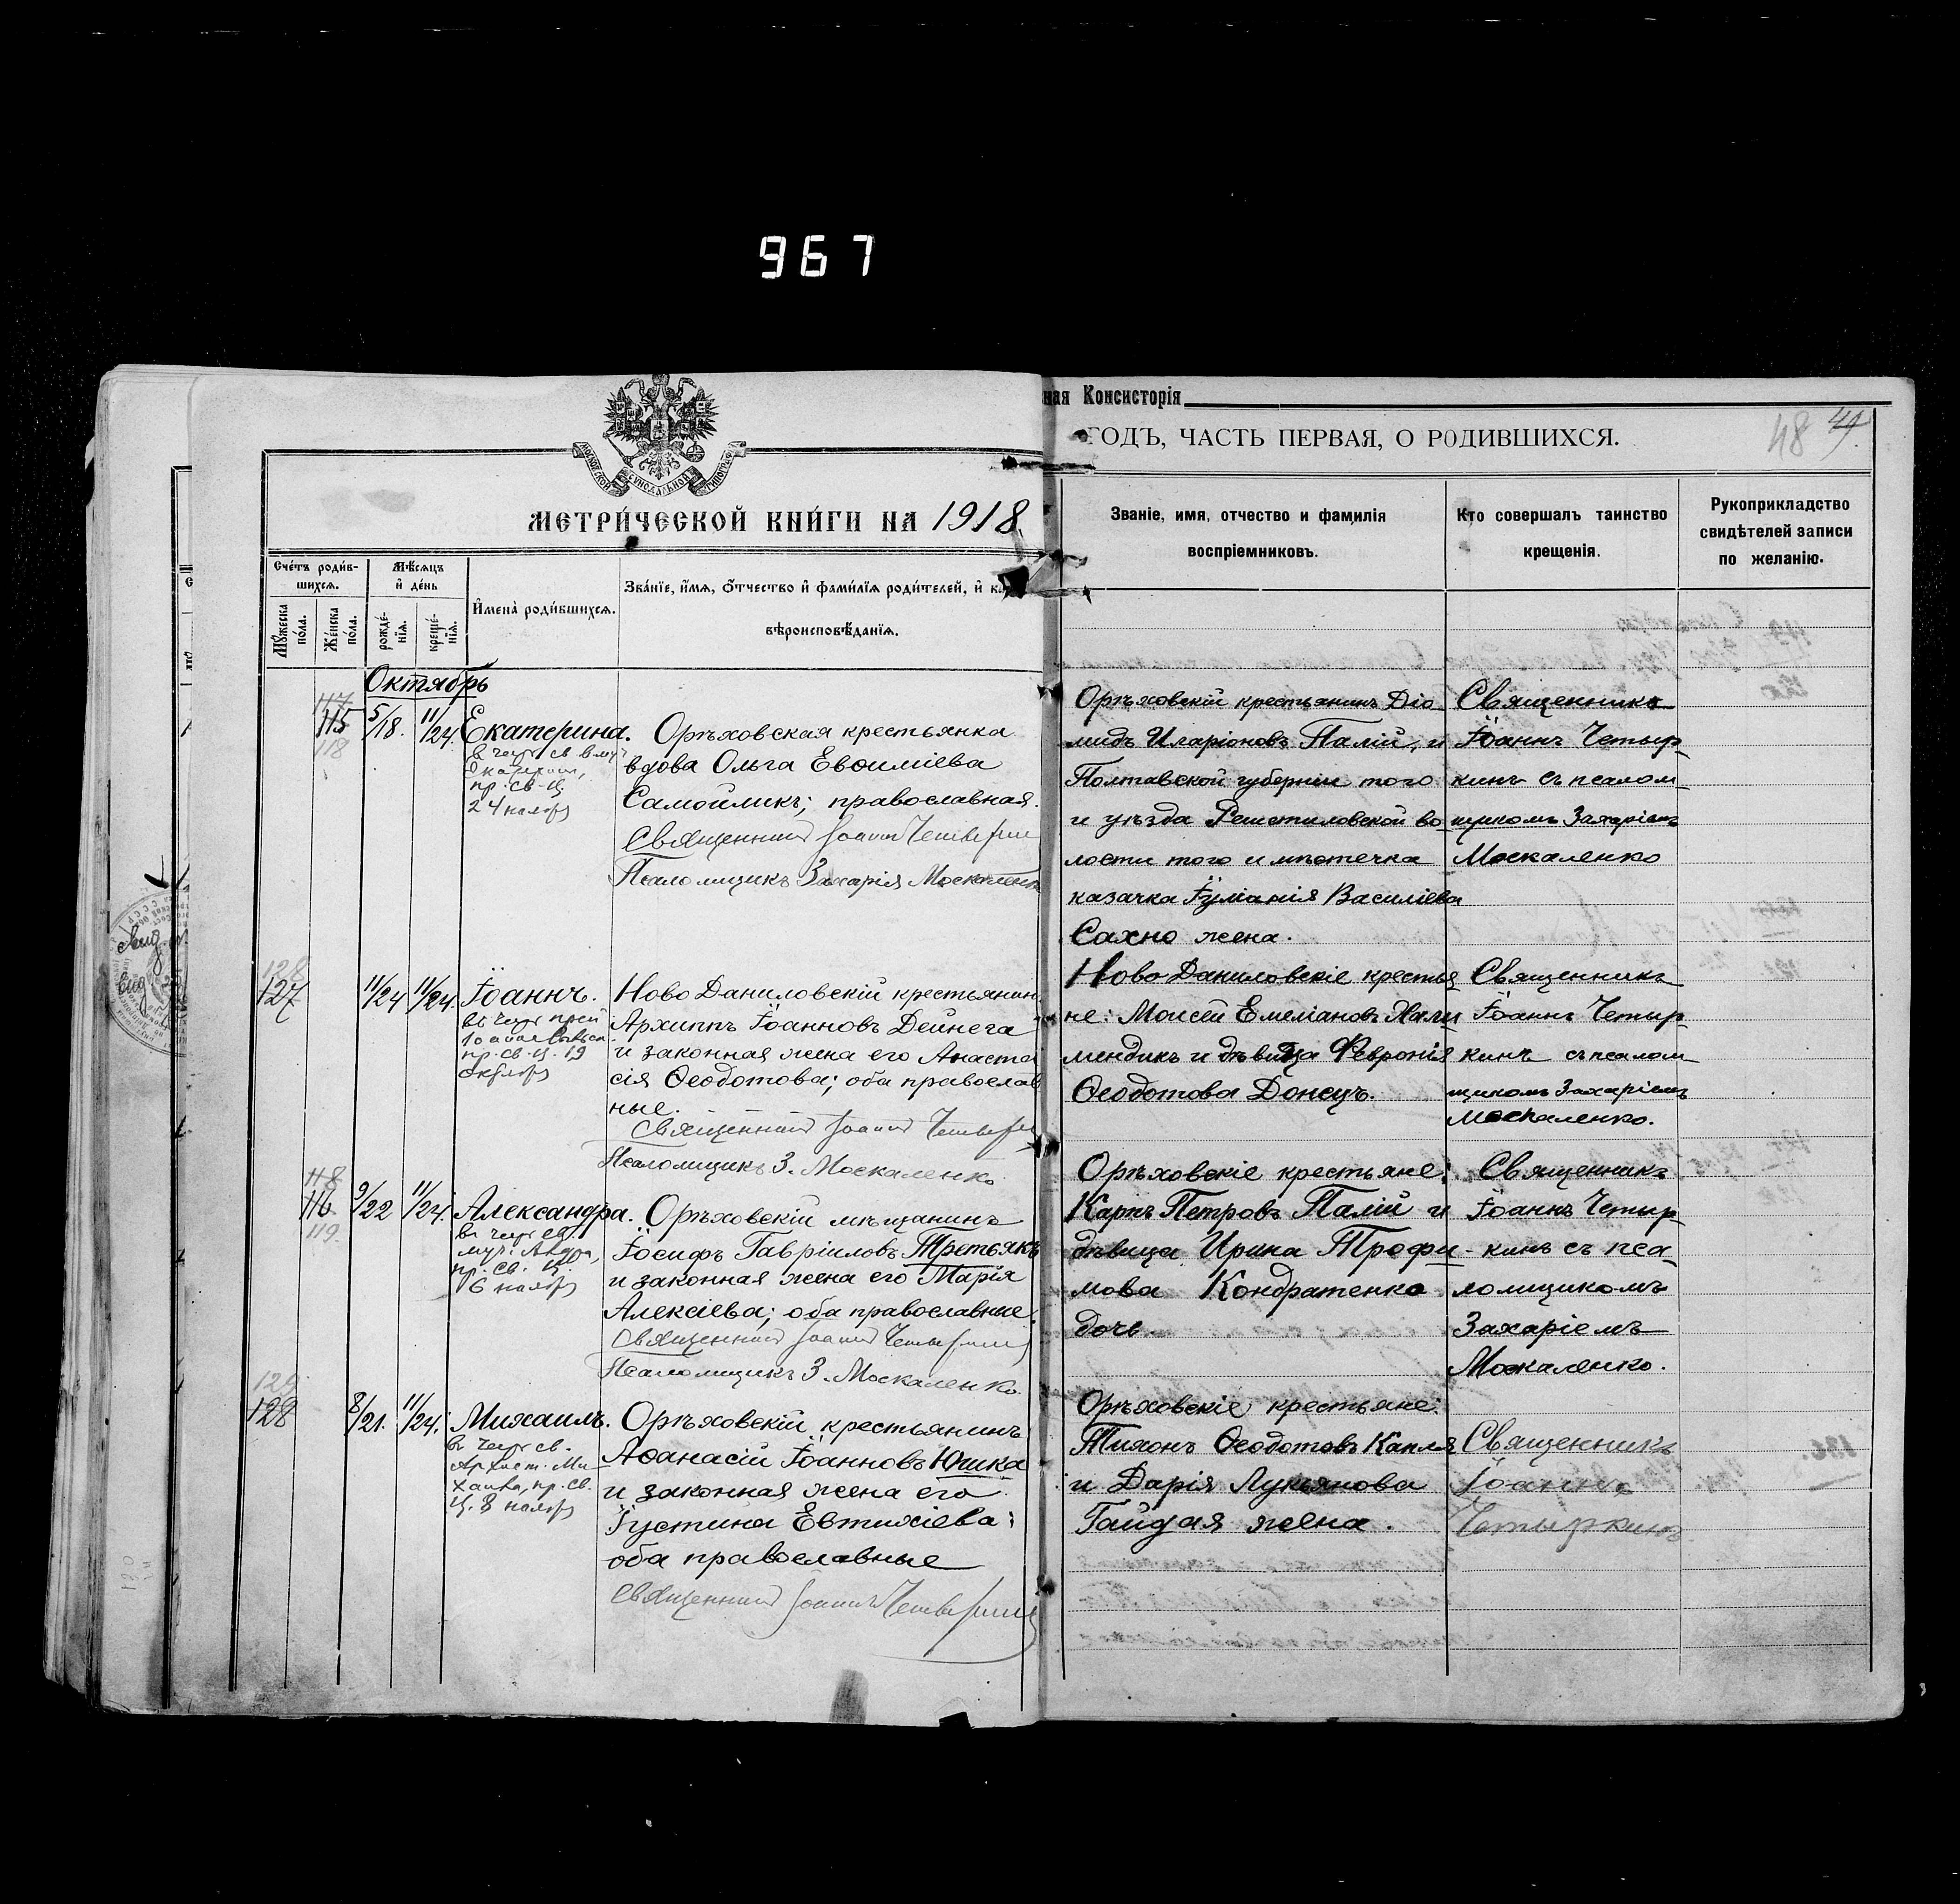 967
ная Консисторія
МЕТРИЧЕСКОЙ КНИГИ НА 1918
ГОДЪ, ЧАСТЬ ПЕРВАЯ, О РОДИВШИХСЯ.
48
Счетъ родившихся.
Мужеска пола.
Женска пола.
Мѣсяцъ и день
рожденія.
крещенія.
Имена родившихся.
Званіе, имя, отчество и фамилія родителей, и к
вѣроисповѣданія.
Званіе, имя, отчество и фамилія
воспріемниковъ.
Кто совершалъ таинство
крещенія.
Рукоприкладство
свидѣтелей записи
по желанію.
Октябрь
117
115
118
5/18.
11/24.
Екатерина.
Екатерин,
пр. св. ц.
24 ноября
Орѣховская крестьянка
вдова Ольга Евѳиміева
Самойликъ; православная.
Священник Іоанн Четыркин
Псаломщикъ Захарія Москаленк
Орѣховскій крестьянинъ Діо-
мидъ Иларіоновъ Палій, и
Полтавской губерніи того
и уѣзда Решетиловской во-
лости того и мѣстечка
казачка Іуліанія Василіева
Сахно жена.
Священникъ
Іоаннъ Четыр-
кинъ съ псалом-
щикомъ Захаріемъ
Москаленко
128
127
11/24
11/24.
Іоаннъ.
пр. св. ц. 19
октября
Ново Даниловскій крестьянин
Архиппъ Іоанновъ Дейнега
и законная жена его Анаста
сія Ѳеодотова; оба православ
ные.
Священник Іоанн Четыркин
Псаломщикъ З. Москаленко
Ново Даниловскіе крестья
не: Моисей Емеліановъ Хали
мендикъ и дѣвица Февронія
Ѳеодотова Донецъ.
Священникъ
Іоаннъ Четыр-
кинъ съ псалом-
щикомъ Захаріемъ
Москаленко.
118
116
119
9/22
11/24.
Александра.
в честь св.
муч. Алдра,
пр. св. ц.
6 ноября
Орѣховскій мѣщанинъ
Іосифъ Гавріиловъ Третьякъ
и законная жена его Марія
Алексіева; оба православные.
Священник Іоанн Четыркин
Псаломщикъ З. Москаленко.
Орѣховскіе крестьяне:
Карпъ Петровъ Палій и
дѣвица Ирина Трофи-
мова Кондратенко
дочь.
Священникъ
Іоаннъ Четыр-
кинъ съ пса
ломщикомъ
Захаріемъ
Москаленко.
129
128
8/21.
11/24.
Михаилъ.
в честь св.
Архист. Ми-
хаила, пр. св.
ц. 8 ноября
Орѣховскій крестьянинъ
Аѳанасій Іоанновъ Юшка
и законная жена его
Іустина Евтихіева;
оба православные
Священник Іоанн Четыркин
Орѣховскіе крестьяне:
Тихонъ Ѳеодотовъ Капля
и Дарія Лукьянова
Гайдая жена.
Священникъ
Іоаннъ
Четыркинъ